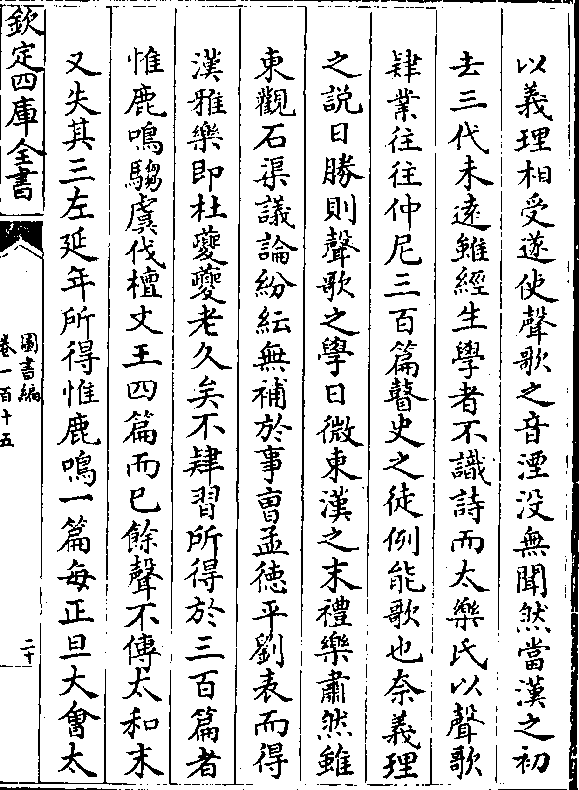 以義理相受遂使聲歌之音湮没無聞然當漢之初
去三代未遠雖經生學者不識詩而太樂氏以聲歌
肄業往往仲尼三百篇瞽史之徒例能歌也奈義理
之説日勝則聲歌之學日微東漢之末禮樂肅然雖
東觀石渠議論紛紜無補於事曹孟徳平劉表而得
漢雅樂即杜夔夔老久矣不肄習所得於三百篇者
惟鹿鳴騶虞伐檀文王四篇而已餘聲不傳太和末
又失其三左延年所得惟鹿鳴一篇每正旦大㑹太
欽定四庫全書
圖書編
卷一百十五
二十